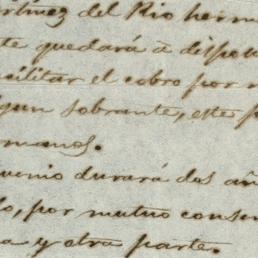 rtinez del Rio herm
te quedará á dispos
cilitar el cobro por
gun sobrante, este
rmanos.
venio durará dos añ
o, por mutuo consen
a y otra parte.